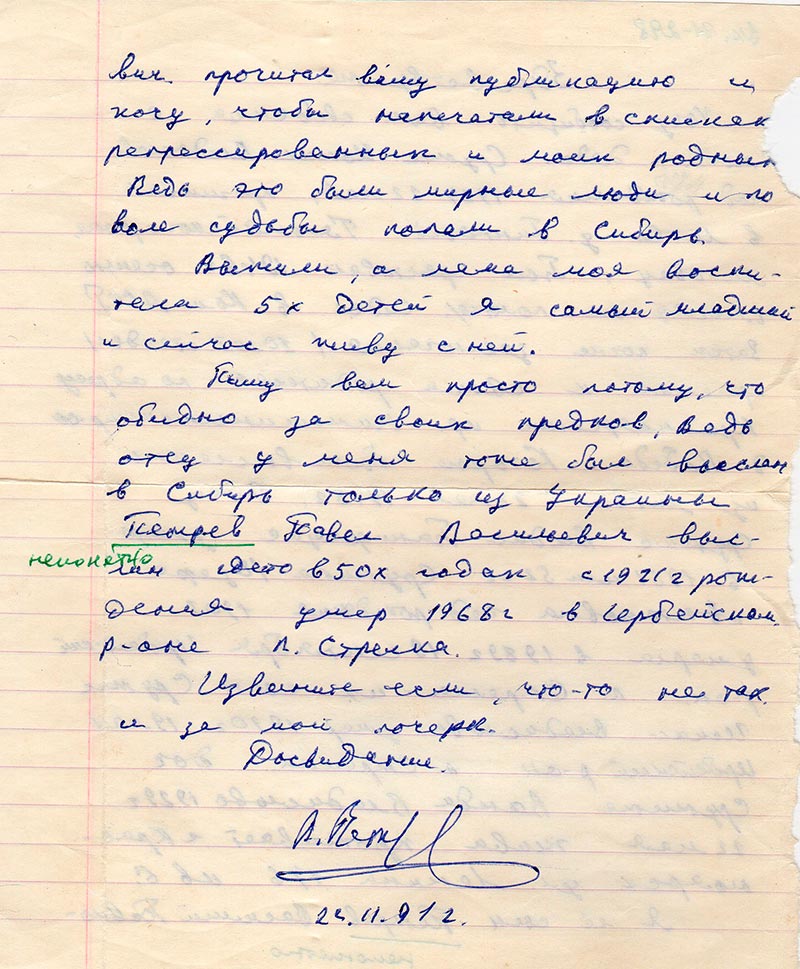 вич. прочитал вашу публикацию и
хочу, чтобы напечатали в списках
репрессированных и моих родных
Ведь это были мирные люди и по
воле судьбы попали в Сибирь.
Выжили, а мама моя воспи-
тала 5х детей я самый младший
и сейчас живу с ней.
Пишу вам просто потому, что
обидно за своих предков, Ведь
отец у меня тоже был выслан
в Сибирь только из Украины
Павел Васильевич выс-
непонятно
лан где-то в 50х годах с 1921г рож-
дения умер 1968г в Ирбейском
р-оне п. Стрелка.
Извените если, что-то не так.
и за мой почерк.
Досвидание.
11.91г.
непонятно